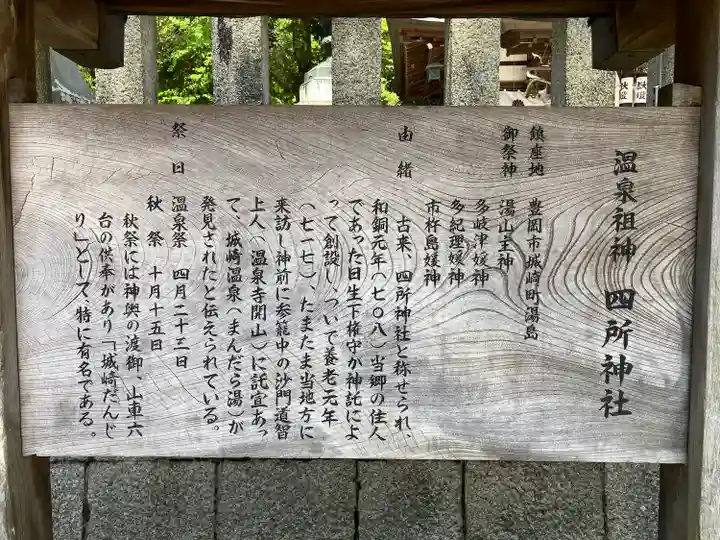 温泉祖神 四所神社
鎮座地 豊岡市城崎町湯島
御祭神 湯山主神
多岐津媛神
多紀理媛神
市杵島媛神
由緒 古来、四所神社と称せられ、
和銅元年(七〇八)当郷の住人
であった日生下権守が神託によ
って創設し、ついで養老元年
(七一七)、たまたま当地方に
来訪し神前に参篭中の沙門道智
上人(温泉寺開山)に託宣あっ
て、城崎温泉(まんだら湯)が
発見されたと伝えられている。
祭日 温泉祭 四月二十三日
秋祭 十月十五日
秋祭には神輿の渡御、山車六
台の供奉があり「城崎だんじ
り」として、特に有名である。